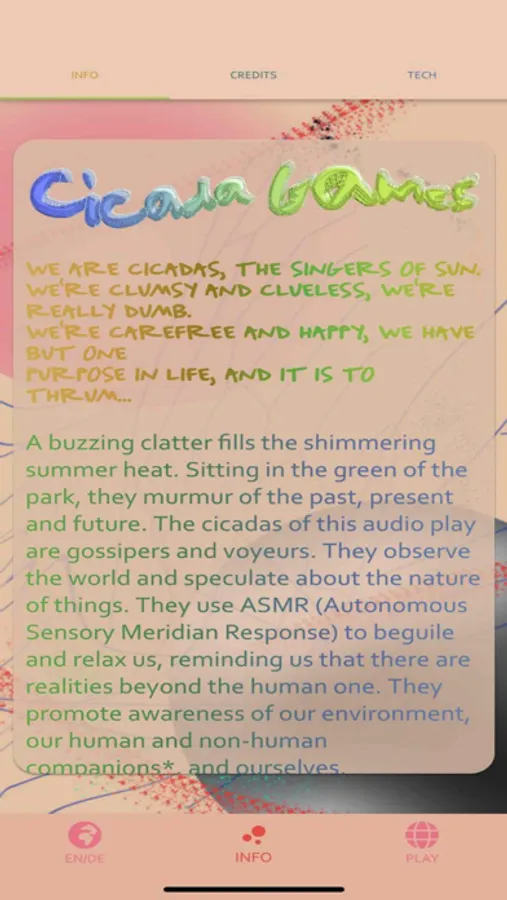 INFO CREDITS TECH
Cicada Games
WE ARE CICADAS, THE SINGERS OF SUN.
WE'RE CLUMSY AND CLUELESS, WE'RE
REALLY DUMB.
WE'RE CAREFREE AND HAPPY, WE HAVE
BUT ONE
PURPOSE IN LIFE, AND IT IS TO
THRUM...
A buzzing clatter fills the shimmering
summer heat. Sitting in the green of the
park, they murmur of the past, present
and future. The cicadas of this audio play
are gossipers and voyeurs. They observe
the world and speculate about the nature
of things. They use ASMR (Autonomous
Sensory Meridian Response) to beguile
and relax us, reminding us that there are
realities beyond the human one. They
promote awareness of our environment,
our human and non-human
companions*, and ourselves.
EN/DE INFO PLAY